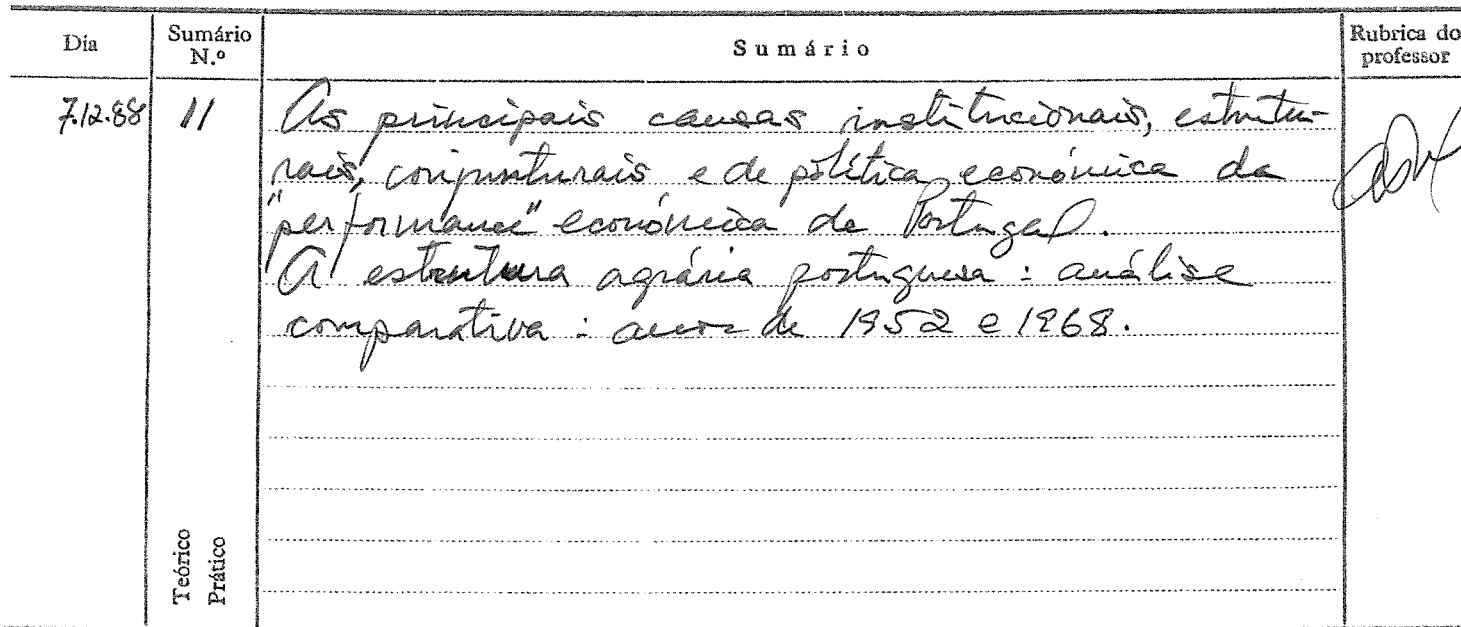 Dia
Sumário N.º
Sumário
Rubrica do professor
7.12.88
11
As principais causas institucionais, estrutu-
rais, conjunturais e de política económica da
"performance" económica de Portugal.
A estrutura agrária portuguesa : análise
comparativa : anos de 1952 e 1968.
Teórico
Prático